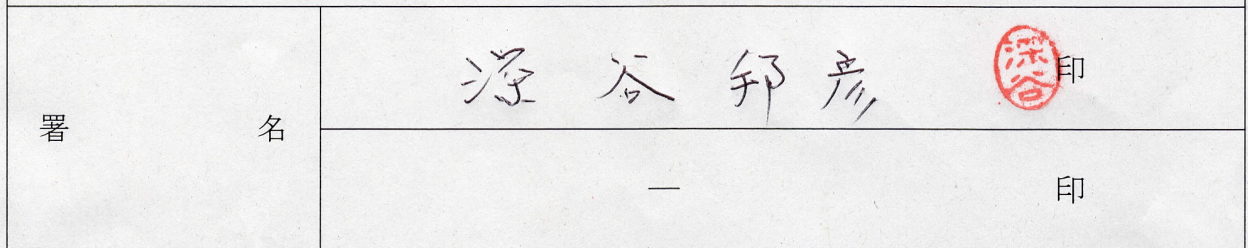 署名
深谷邦彦 深谷 印
— 印